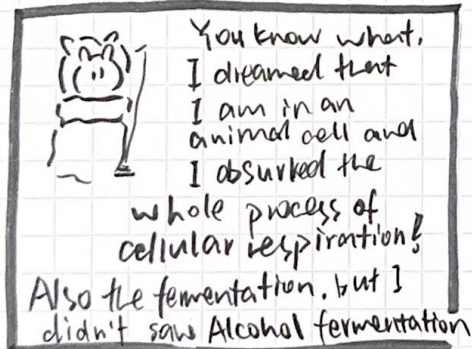 You know what,
I dreamed that
I am in an
animal cell and
I absurked the
whole process of
cellular respiration!
Also the fermentation, but I
didn't saw Alcohol fermentation